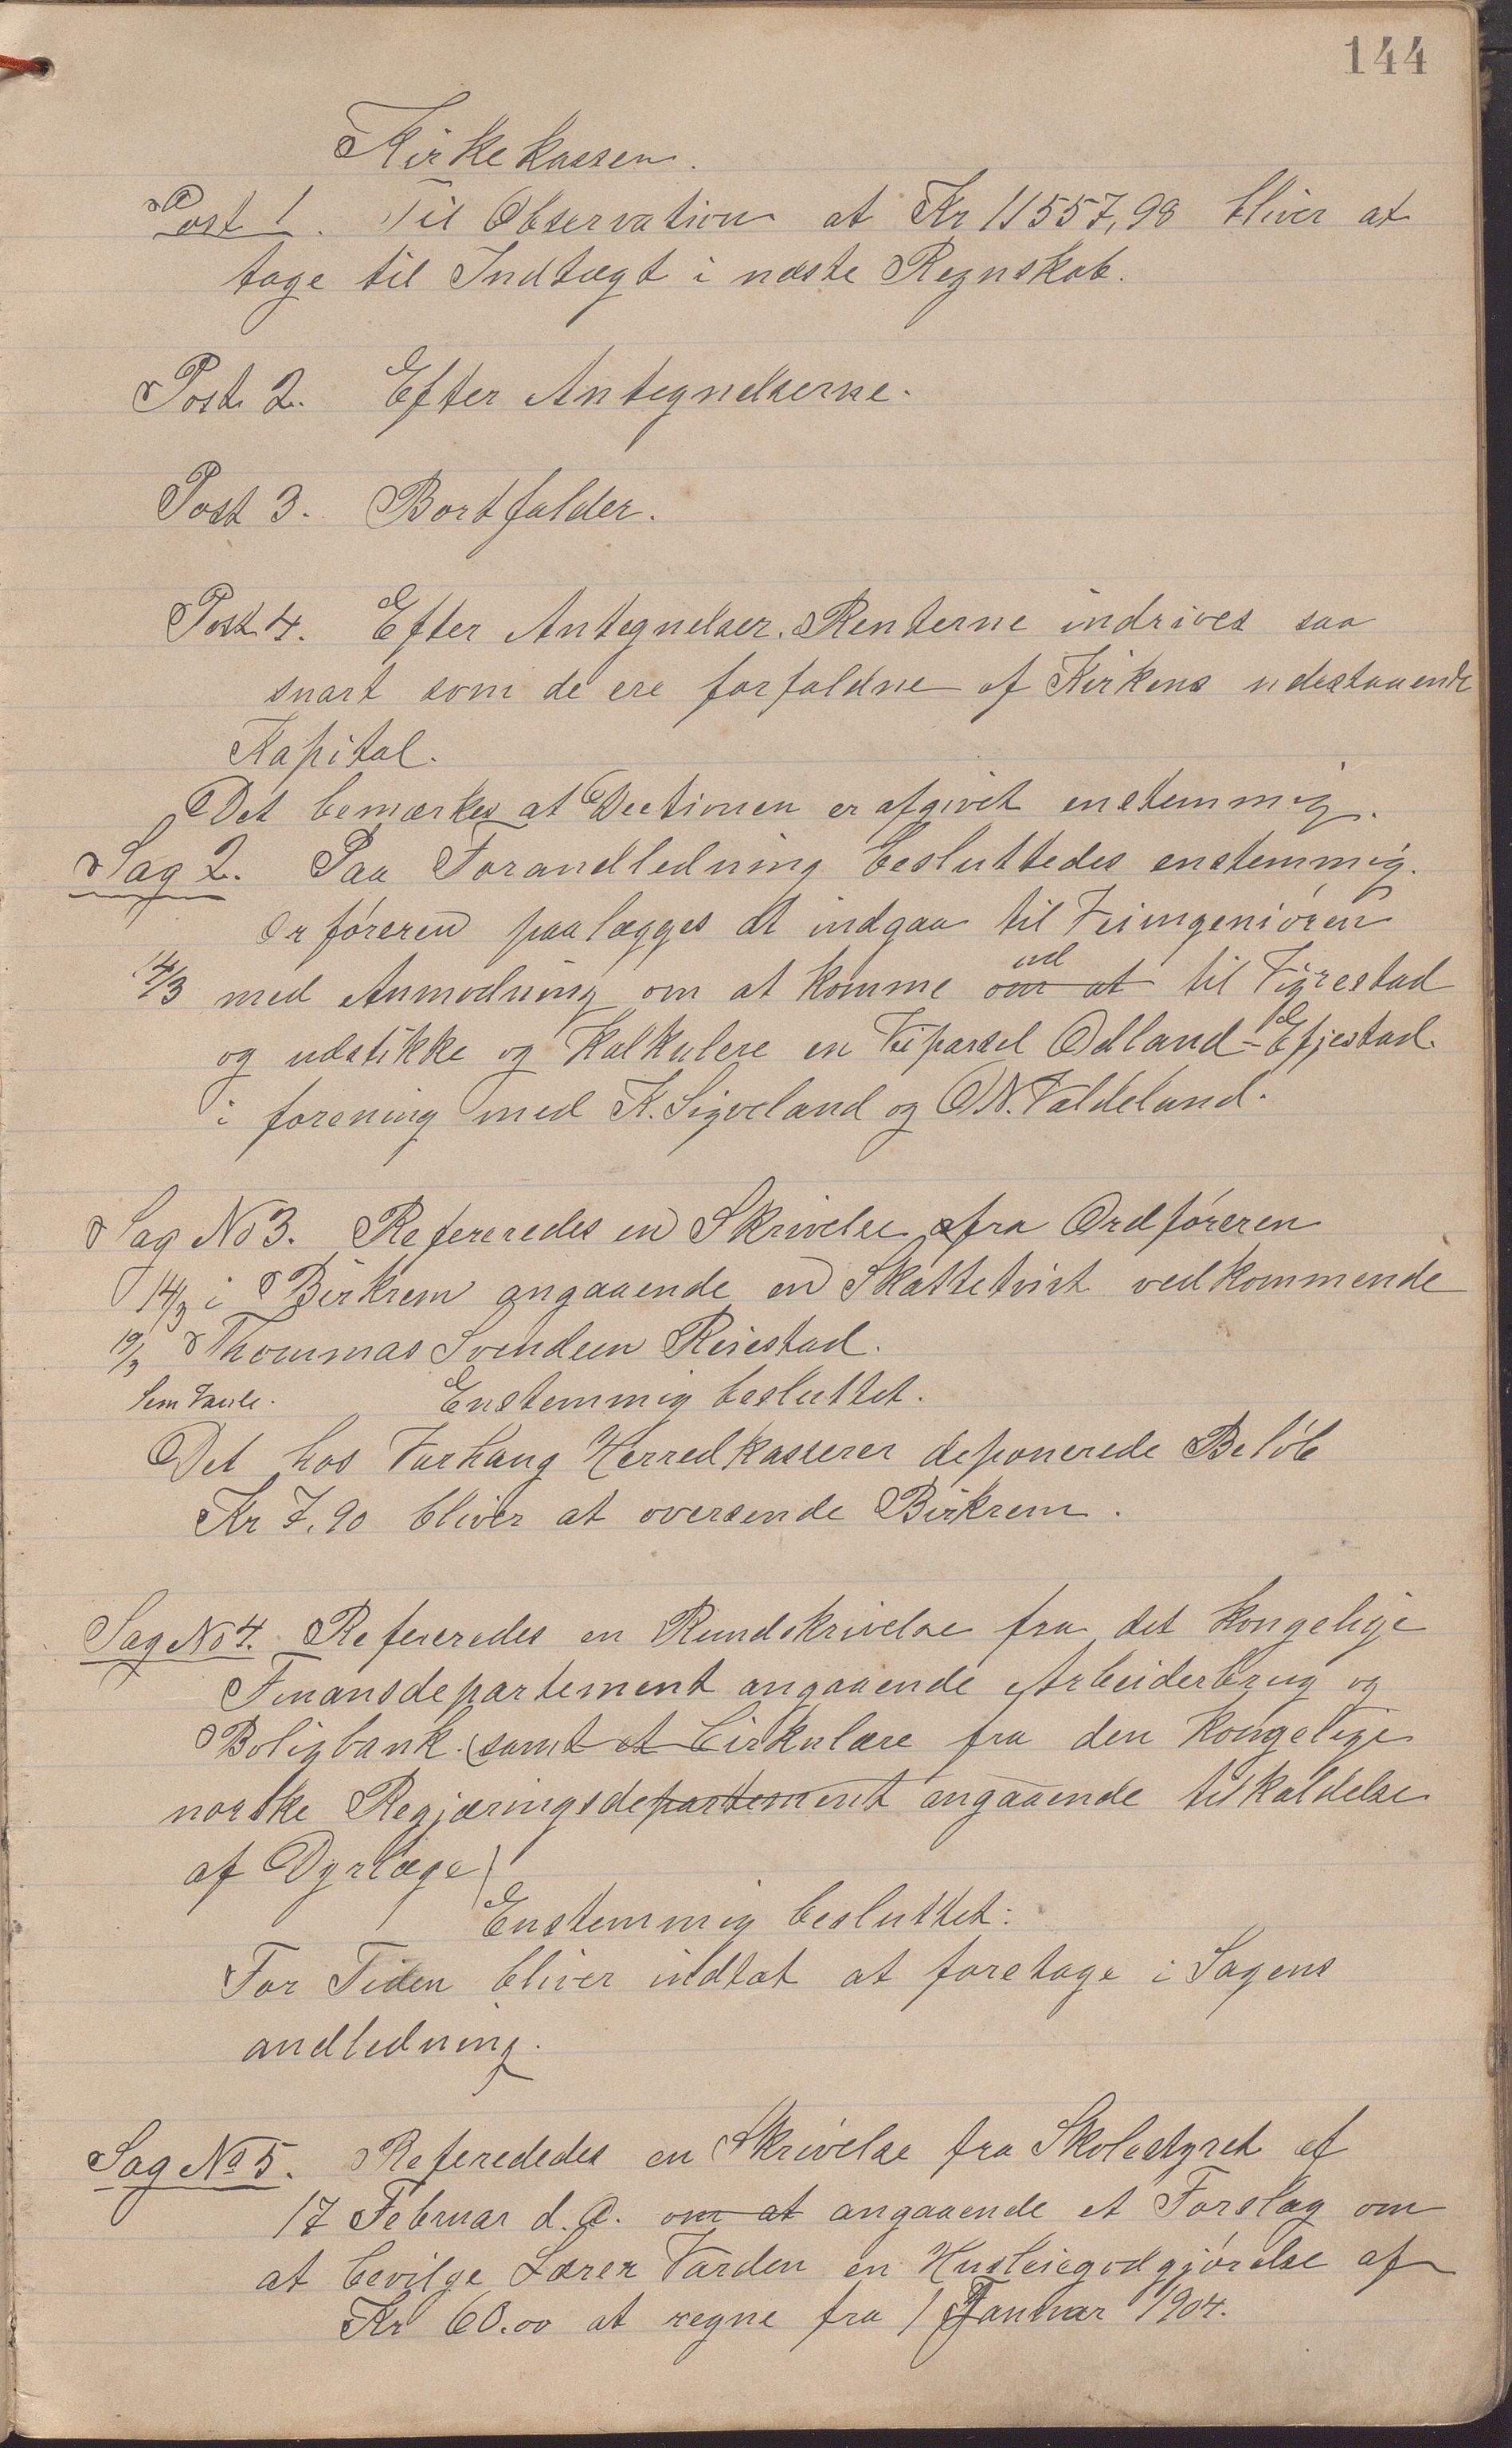 144
Kirkekassen.
Post 1. Til Observation at Kr 11557,98 bliver at
tage til Indtægt i næste Regnskab.
Post 2. Efter Antegnelserne.
Post 3. Bortfalder.
Post 4. Efter Antegnelser. Renterne indrives saa
snart som de ere forfaldne af Kirkens udestaaende
Kapital.
Det bemærkes at Decisionen er afgivet enstemmig.
Sag 2. Paa Forandledning besluttedes enstemmig.
Orføreren paalægges at indgaa til Veiingeniøren
ud
14/3 med Anmodning om at komme om at til Vigrestad
og udstikke og Kalkulere en Veiparsel Ødland-Efjestad.
i forening med K. Sigveland og O.N. Valdeland.
Sag No 3. Refereredes en Skrivelse fra Ordføreren
14/3 i Birkrem angaaende en Skattetvist vedkommende
19/3 Thommas Svendsen Reiestad.
Enstemmig besluttet.
Det hos Varhaug Herredkasserer deponerede Beløb
Kr 7,90 bliver at oversende Birkrem.
Sag No 4. Refereredes en Rundskrivelse fra det Kongelige
Finansdepartement angaaende Arbeiderbrug og
Boligbank. (samt et Cirkulære fra den Kongelige
norske Regjæringsdepartement angaaende tilkaldelse
af Dyrlæge)
Enstemmig besluttet:
For Tiden bliver indtat at foretage i Sagens
andledning.
Sag No 5. Referededes en Skrivelse fra Skolestyret af
17 Februar d.A. om at angaaende et Forslag om
at bevilge Lærer Varden en Husleiegodgjørelse af
Kr 60.00 at regne fra 1 Januar 1904.